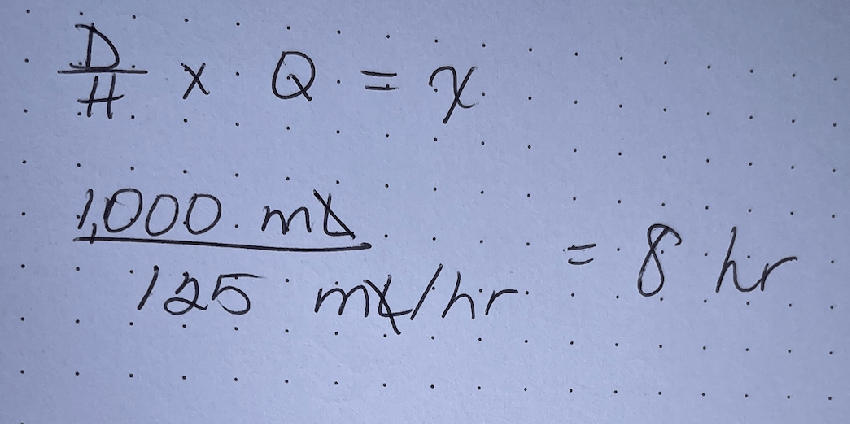 D/H x Q = x
1,000 mL / 125 mL/hr = 8 hr